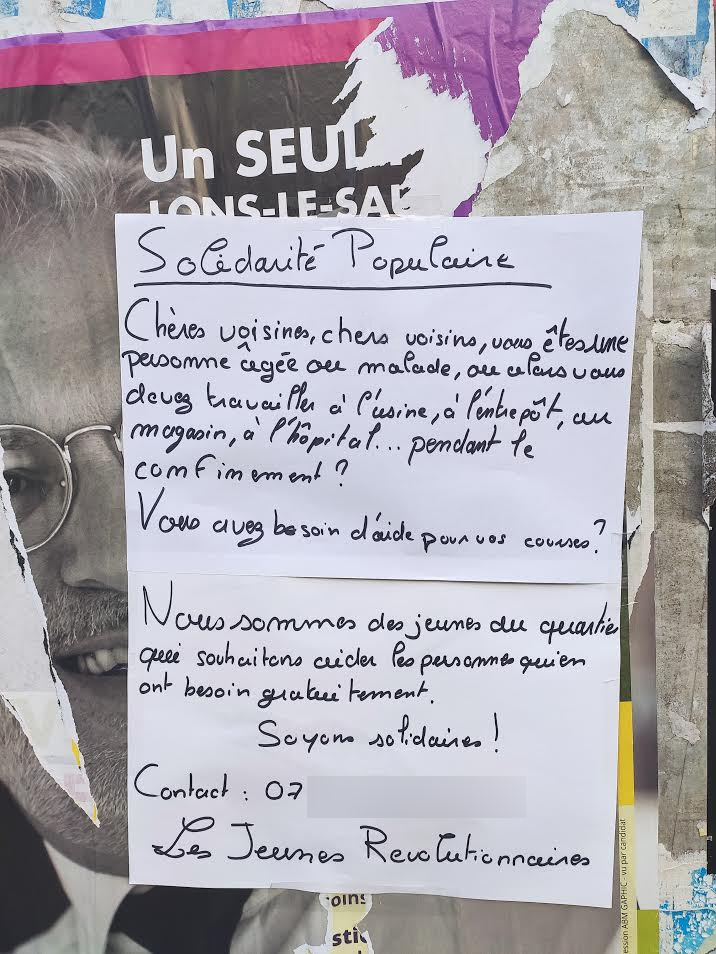 Un SEUL
LONS-LE-SAU
Solidarité Populaire
Chères voisines, chers voisins, vous êtes une
personne âgée ou malade, ou alors vous
devez travailler à l'usine, à l'entrepôt, au
magasin, à l'hôpital... pendant le
confinement ?
Vous avez besoin d'aide pour vos courses ?
Nous sommes des jeunes du quartie
qui souhaitons aider les personnes qui en
ont besoin gratuitement.
Soyons solidaires !
Contact : 07
Les Jeunes Revolutionnaires
oins
stic
ession ABM GAPHIC - vu par candidat